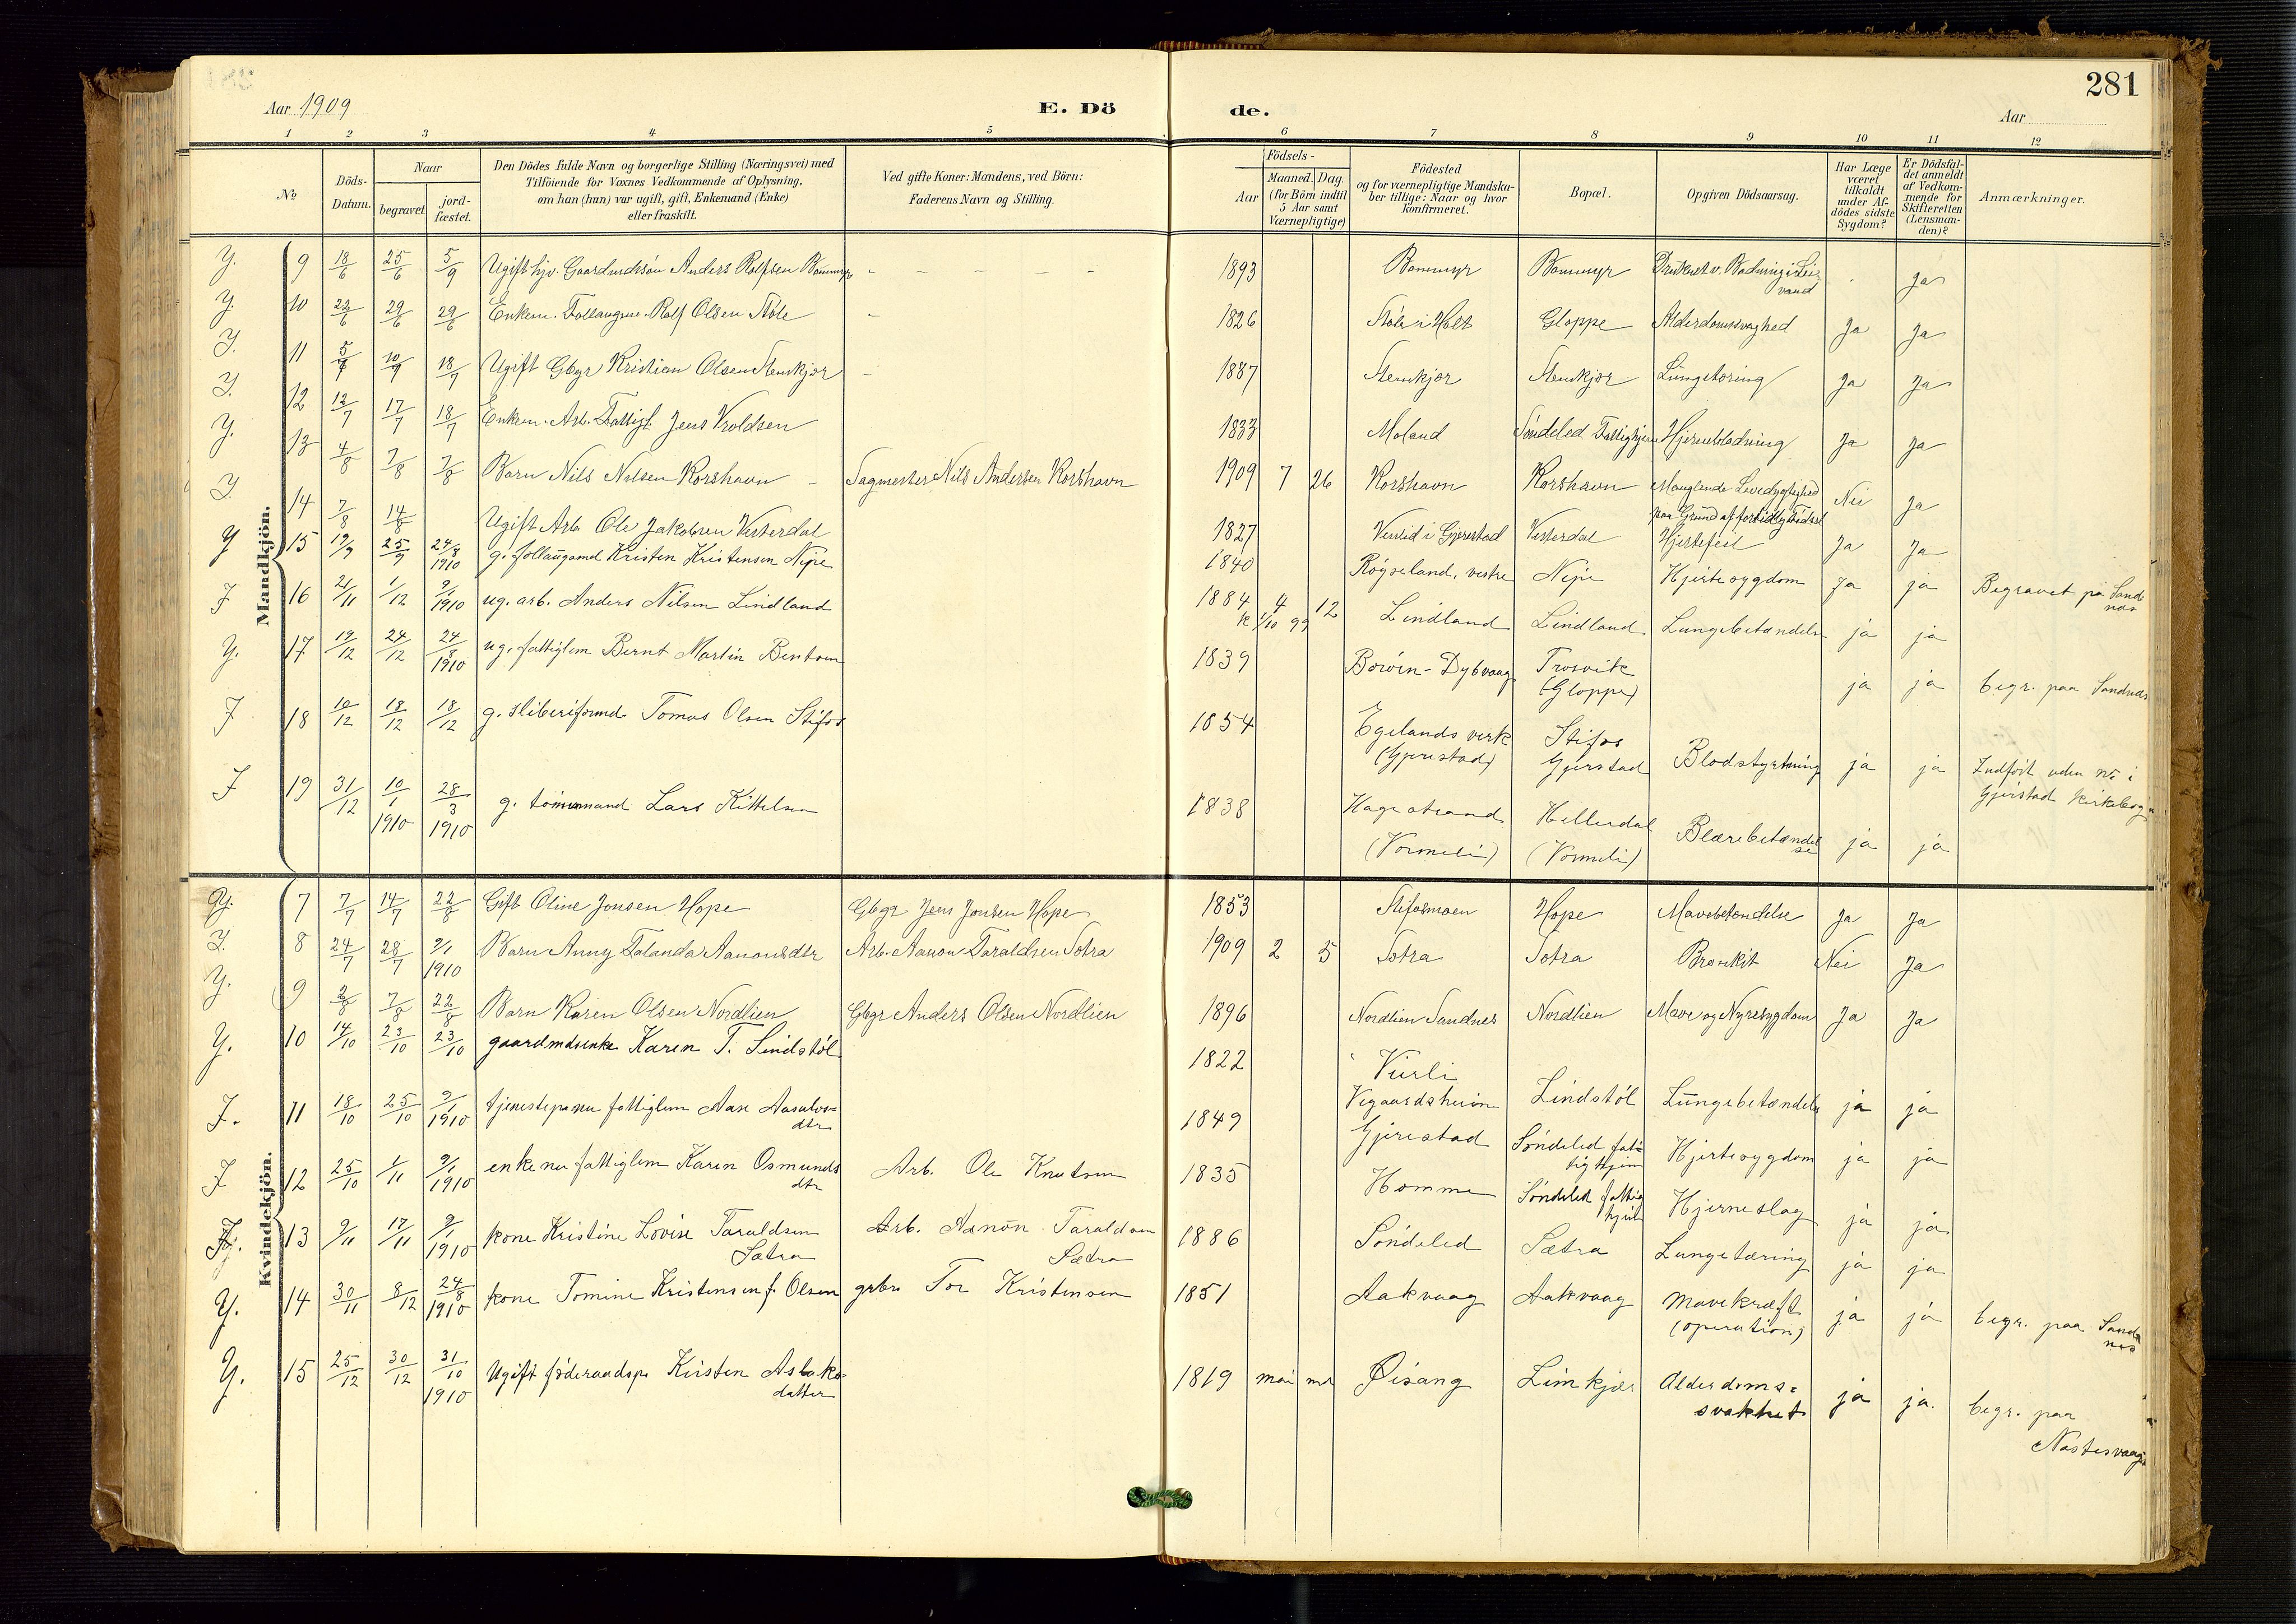 281
Aar 1909
E. Dö
de.
Aar
1 2 3 4 5 6 7 8 9 10 11 12
No
Döds-Datum.
Naar
begravet
jord-fæstet.
Den Dödes fulde Navn og borgerlige Stilling (Næringsvei) med
Tilföiende for Voxnes Vedkommende af Oplysning,
om han (hun) var ugift, gift, Enkemand (Enke)
eller fraskilt.
Ved gifte Koner: Mandens, ved Börn:
Faderens Navn og Stilling.
Födsels-
Aar
Maaned. Dag.
(for Börn indtil
5 Aar samt
Værnepligtige)
Födested
og for værnepligtige Mandska-
ber tillige: Naar og hvor
konfirmeret.
Bopæl.
Opgiven Dödsaarsag.
Har Læge
været
tilkaldt
under Af-
dödes sidste
Sygdom?
Er Dödsfal-
det anmeldt
af Vedkom-
mende for
Skifteretten
(Lensman-
den)?
Anmærkninger.
Mandkjön.
Y. 9 18/6 25/6 5/9 Ugift hjv. Gaardmdssøn Anders Rolfsen Bommyr - - - - - 1893 Bommyr Bommyr Druknet v. Badning i Lei-vand . Ja
Y. 10 22/6 29/6 29/6 Enkem. Follaugsm. Rolf Olsen Støle - 1826 Støle i Holt Gloppe Alderdomssvaghed Ja Ja
Y. 11 5/7 10/7 18/7 Ugift Gbgr Kristian Olsen Stenkjær - 1887 Stenkjær Stenkjær Lungetæring Ja Ja
Y. 12 12/7 17/7 18/7 Enkem. Arb. Fattigl. Jens Vroldsen 1833 Moland Søndeled Fattighjem Hjerneblødning Ja Ja
Y. 13 4/8 7/8 7/8 Barn Nils Nilsen Korshavn - Sagmester Nils Andersen Korshavn 1909 7 26 Korshavn Korshavn Manglende Levedygtighed paa Grund af for tidlig Fødsel Nei Ja
Y. 14 7/8 14/8 Ugift Arb Ole Jakobsen Vesterdal 1827 i Gjerestad Vesterdal Hjertefeil Ja Ja
Y 15 19/9 25/9 24/8 1910 g. follaugsmd Kristen Kristensen Nipe 1840 Røyseland, vestre Nipe Hjertesygdom Ja ja Begravet pa Sandnæs
J 16 21/11 1/12 9/1 1910 ug. arb. Anders Nilsen Lindland 1884 4 12 k 1/10 99 Lindland Lindland Lungebetændelse ja ja
Y. 17 19/12 24/12 24/8 1910 ug. fattiglem Bernt Martin Bentsen 1839 Borøen-Dybvaag Trosvik (Gloppe) ja ja begr. paa Sandnæs
J 18 10/12 18/12 18/12 g. sliberiformd. Tomas Olsen Stifos 1854 Egelands verk (Gjerestad) Stifos Gjerstad Blodstyrtning ja ja Indført uden no i Gjerstad kirkebog
J 19 31/12 10/1 1910 28/3 1910 g. tømmermand Lars Kittelsen 1838 Hagestrand (Vormeli) Hellerdal (Vormeli) Blærebetændelse ja ja
Kvindekjön.
Y. 7 7/7 14/7 22/8 Gift Oline Jonsen Hope Gbgr Jens Jonsen Hope 1853 Stifosmoen Hope Mavebetændelse Ja Ja
Y. 8 24/7 28/7 9/1 1910 Barn Anny Aanonsdtr Arb. Aanon Taraldsen Sætra 1909 2 5 Sætra Sætra Bronkit Nei Ja
Y. 9 2/8 7/8 22/8 Barn Karen Olsen Nordlien Gbgr Anders Olsen Nordlien 1896 Nordlien Sandnes Nordlien Mave og Nyresygdom Ja Ja
Y. 10 14/10 23/10 23/10 gaardmdsenke Karen T. Lindstøl 1822 Vierli Vegaardsheien Lindstøl Lungebetændelse ja ja
J. 11 18/10 25/10 9/1 1910 tjenestepike nu fattiglem Aase Aasulvs=dtr 1849 Gjerestad Søndeled fattighjem Hjertesygdom ja ja
J 12 25/10 1/11 9/1 1910 enke nu fattiglem Karen Osmunds dtr Arb. Ole Knutsen 1835 Homme Søndeled fattighjem Hjerneslag ja ja
J. 13 9/11 17/11 9/1 1910 kone Kristine Lovise Taraldsen Sætra Arb. Aanon Taraldsen Sætra 1886 Søndeled Sætra Lungetæring ja ja
Y. 14 30/11 8/12 24/8 1910 kone Tomine Kristensen f. Olsen grbr. Tor Kristensen 1851 Aakvaag Aakvaag mavekræft (operation) ja ja begr. paa Sandnæs
Y. 15 25/12 30/12 31/10 1910 Ugift føderaadsp. Kirsten Aslaks=datter 1819 mai Øisang Limkjær Alderdoms=svakhet ja ja. begr. paa Næstesvaag